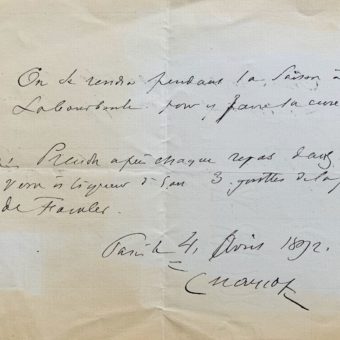 On se rendra pendant la saison à
Labourboule pour y faire la cure
Prendre après chaque repas dans
verre à liqueur d'eau 3 gouttes de la
de Fowler.
Paris le 4, Avril 1892.
Charcot